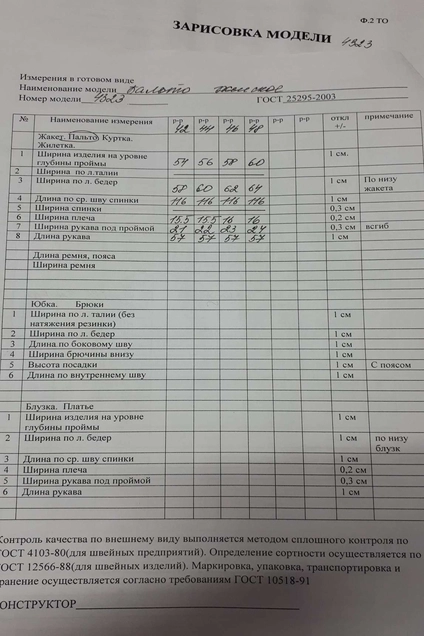 Ф.2 ТО
ЗАРИСОВКА МОДЕЛИ 4323
Измерения в готовом виде
Наименование модели Пальто женское
Номер модели 4323 ГОСТ 25295-2003
№ Наименование измерения р-р 42 р-р 44 р-р 46 р-р 48 р-р р-р откл +/- примечание
Жакет. Пальто. Куртка.
Жилетка.
1 Ширина изделия на уровне глубины проймы 54 56 58 60 1 см.
2 Ширина по л.талии
3 Ширина по л. бедер 58 60 62 64 1 см По низу жакета
4 Длина по ср. шву спинки 116 116 116 116 1 см
5 Ширина спинки 0,3 см
6 Ширина плеча 15,5 15,5 16 16 0,2 см
7 Ширина рукава под проймой 21 22 23 24 0,3 см всгиб
8 Длина рукава 57 57 57 57 1 см
Длина ремня, пояса
Ширина ремня
Юбка. Брюки
1 Ширина по л. талии (без натяжения резинки) 1 см
2 Ширина по л. бедер 1 см
3 Длина по боковому шву 1 см
4 Ширина брючины внизу 1 см
5 Высота посадки 1 см С поясом
6 Длина по внутреннему шву 1 см
Блузка. Платье
1 Ширина изделия на уровне глубины проймы 1 см
2 Ширина по л. бедер 1 см по низу блузк
3 Длина по ср. шву спинки 1 см
4 Ширина плеча 0,2 см
5 Ширина рукава под проймой 0,3 см
6 Длина рукава 1 см
Контроль качества по внешнему виду выполняется методом сплошного контроля по
ГОСТ 4103-80(для швейных предприятий). Определение сортности осуществляется по
ГОСТ 12566-88(для швейных изделий). Маркировка, упаковка, транспортировка и
ранение осуществляется согласно требованиям ГОСТ 10518-91
ОНСТРУКТОР